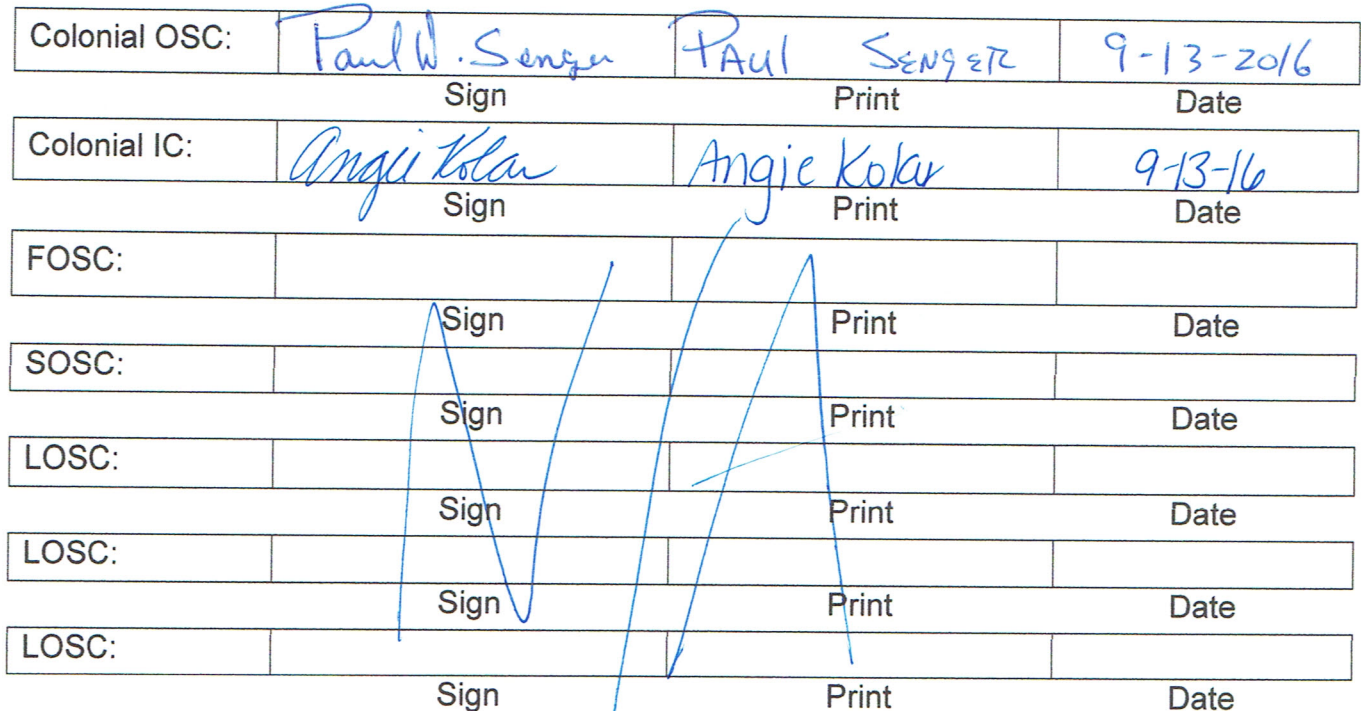 Colonial OSC: Paul W. Senger PAUl SENgER 9-13-2016
Sign Print Date
Colonial IC: Angie Kolar Angie Kolar 9-13-16
Sign Print Date
FOSC:
Sign Print Date
SOSC:
Sign Print Date
LOSC:
Sign Print Date
LOSC:
Sign Print Date
LOSC:
Sign Print Date
N/A